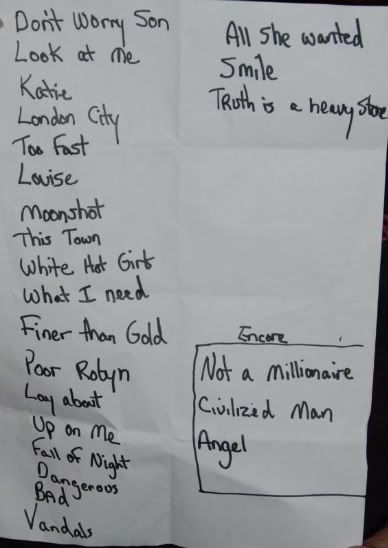 Don't Worry Son
Look at me
Katie
London City
Too Fast
Louise
Moonshot
This Town
White Hot Girls
What I need
Finer than Gold
Poor Robyn
Lay about
Up on Me
Fall of Night
Dangerous
BAD
Vandals
All She wanted
Smile
Truth is a heavy Stone
Encore
Not a Millionaire
Civilized Man
Angel